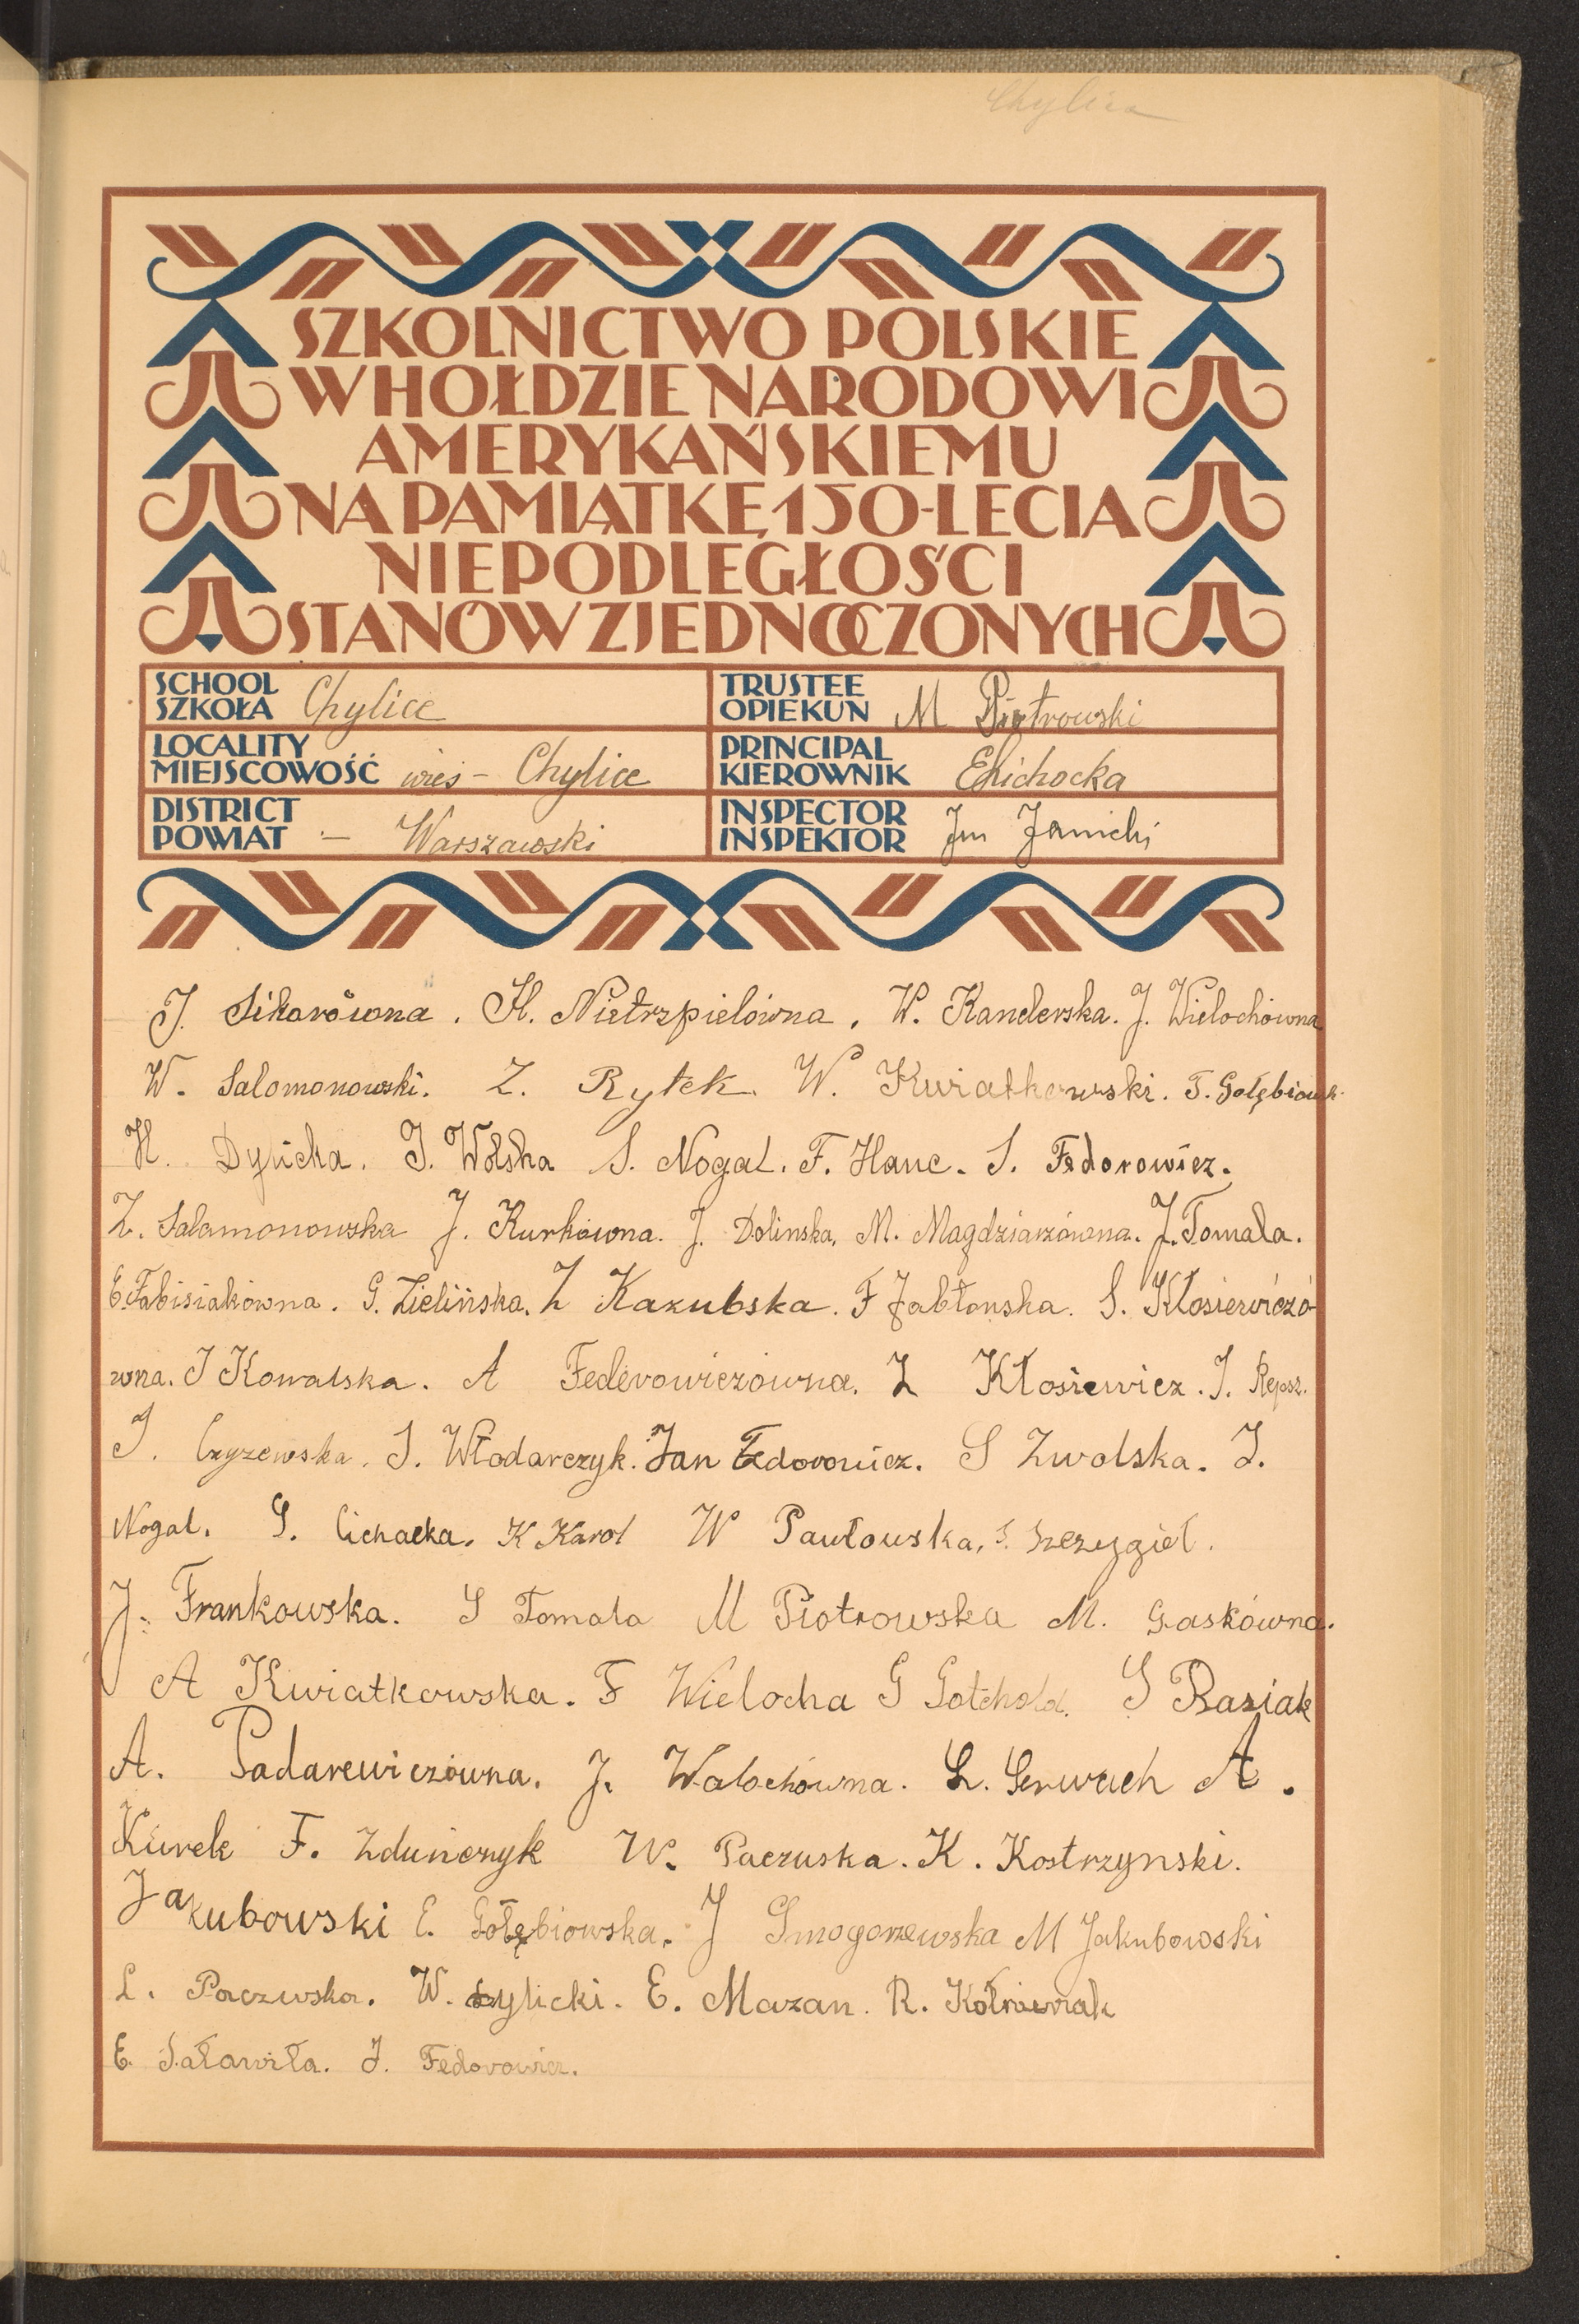 Chylice
SZKOLNICTWO POLSKIE
W HOŁDZIE NARODOWI
AMERYKAŃSKIEMU
NA PAMIĄTKĘ 150-LECIA
NIEPODLEGŁOŚCI
STANÓW ZJEDNOCZONYCH
SCHOOL
SZKOŁA Chylice
TRUSTEE
OPIEKUN M Piotrowski
LOCALITY
MIEJSCOWOŚĆ wieś - Chylice
PRINCIPAL
KIEROWNIK ECichocka
DISTRICT
POWIAT - Warszawski
INSPECTOR
INSPEKTOR Janicki
J. Sikorówna. H. Nietrzpielówna. W. Kanderska. J. Wielochówna
W. Salomonowski. Z. Rytek. W. Kwiatkowski. T. Gołębiowsk
H. Dylicka. J. Wolska S. Nogal. F. Hauc. S. Fedorowicz.
Z. Salamonowska J. Kurkówna. J. Dolinska, M. Magdziarzówna. J. Tomala.
E. Fabisiakówna. G. Zielińska. Z Kakubska. F Jabłonska. S. Kłosiewiczó
wna. J Kowalska. A Federowiczówna. Z Kłosiewicz. J. Repsz.
J. Czyzewska. S. Włodarczyk. Jan Fedorowicz. S Zwolska. J.
Nogal. S. Cichacka. K Karol W Pawłowska, S. Szczygieł.
J. Frankowska. S Tomala M Piotrowska M. Gaskówna.
A Kwiatkowska. F Wielocha G Gotchold. S Raziak
A. Padarewiczówna. J. Walochówna. L. Serwach A.
Kurek F. Zduńczyk W. Paczuska. K. Kostrzynski.
Jakubowski E. Gołębiowska. J Smogorzewska M Jakubowski
L. Paczuska. W. Dylicki. E. Mazan. R.
E. Saławiła. J. Fedorowicz.